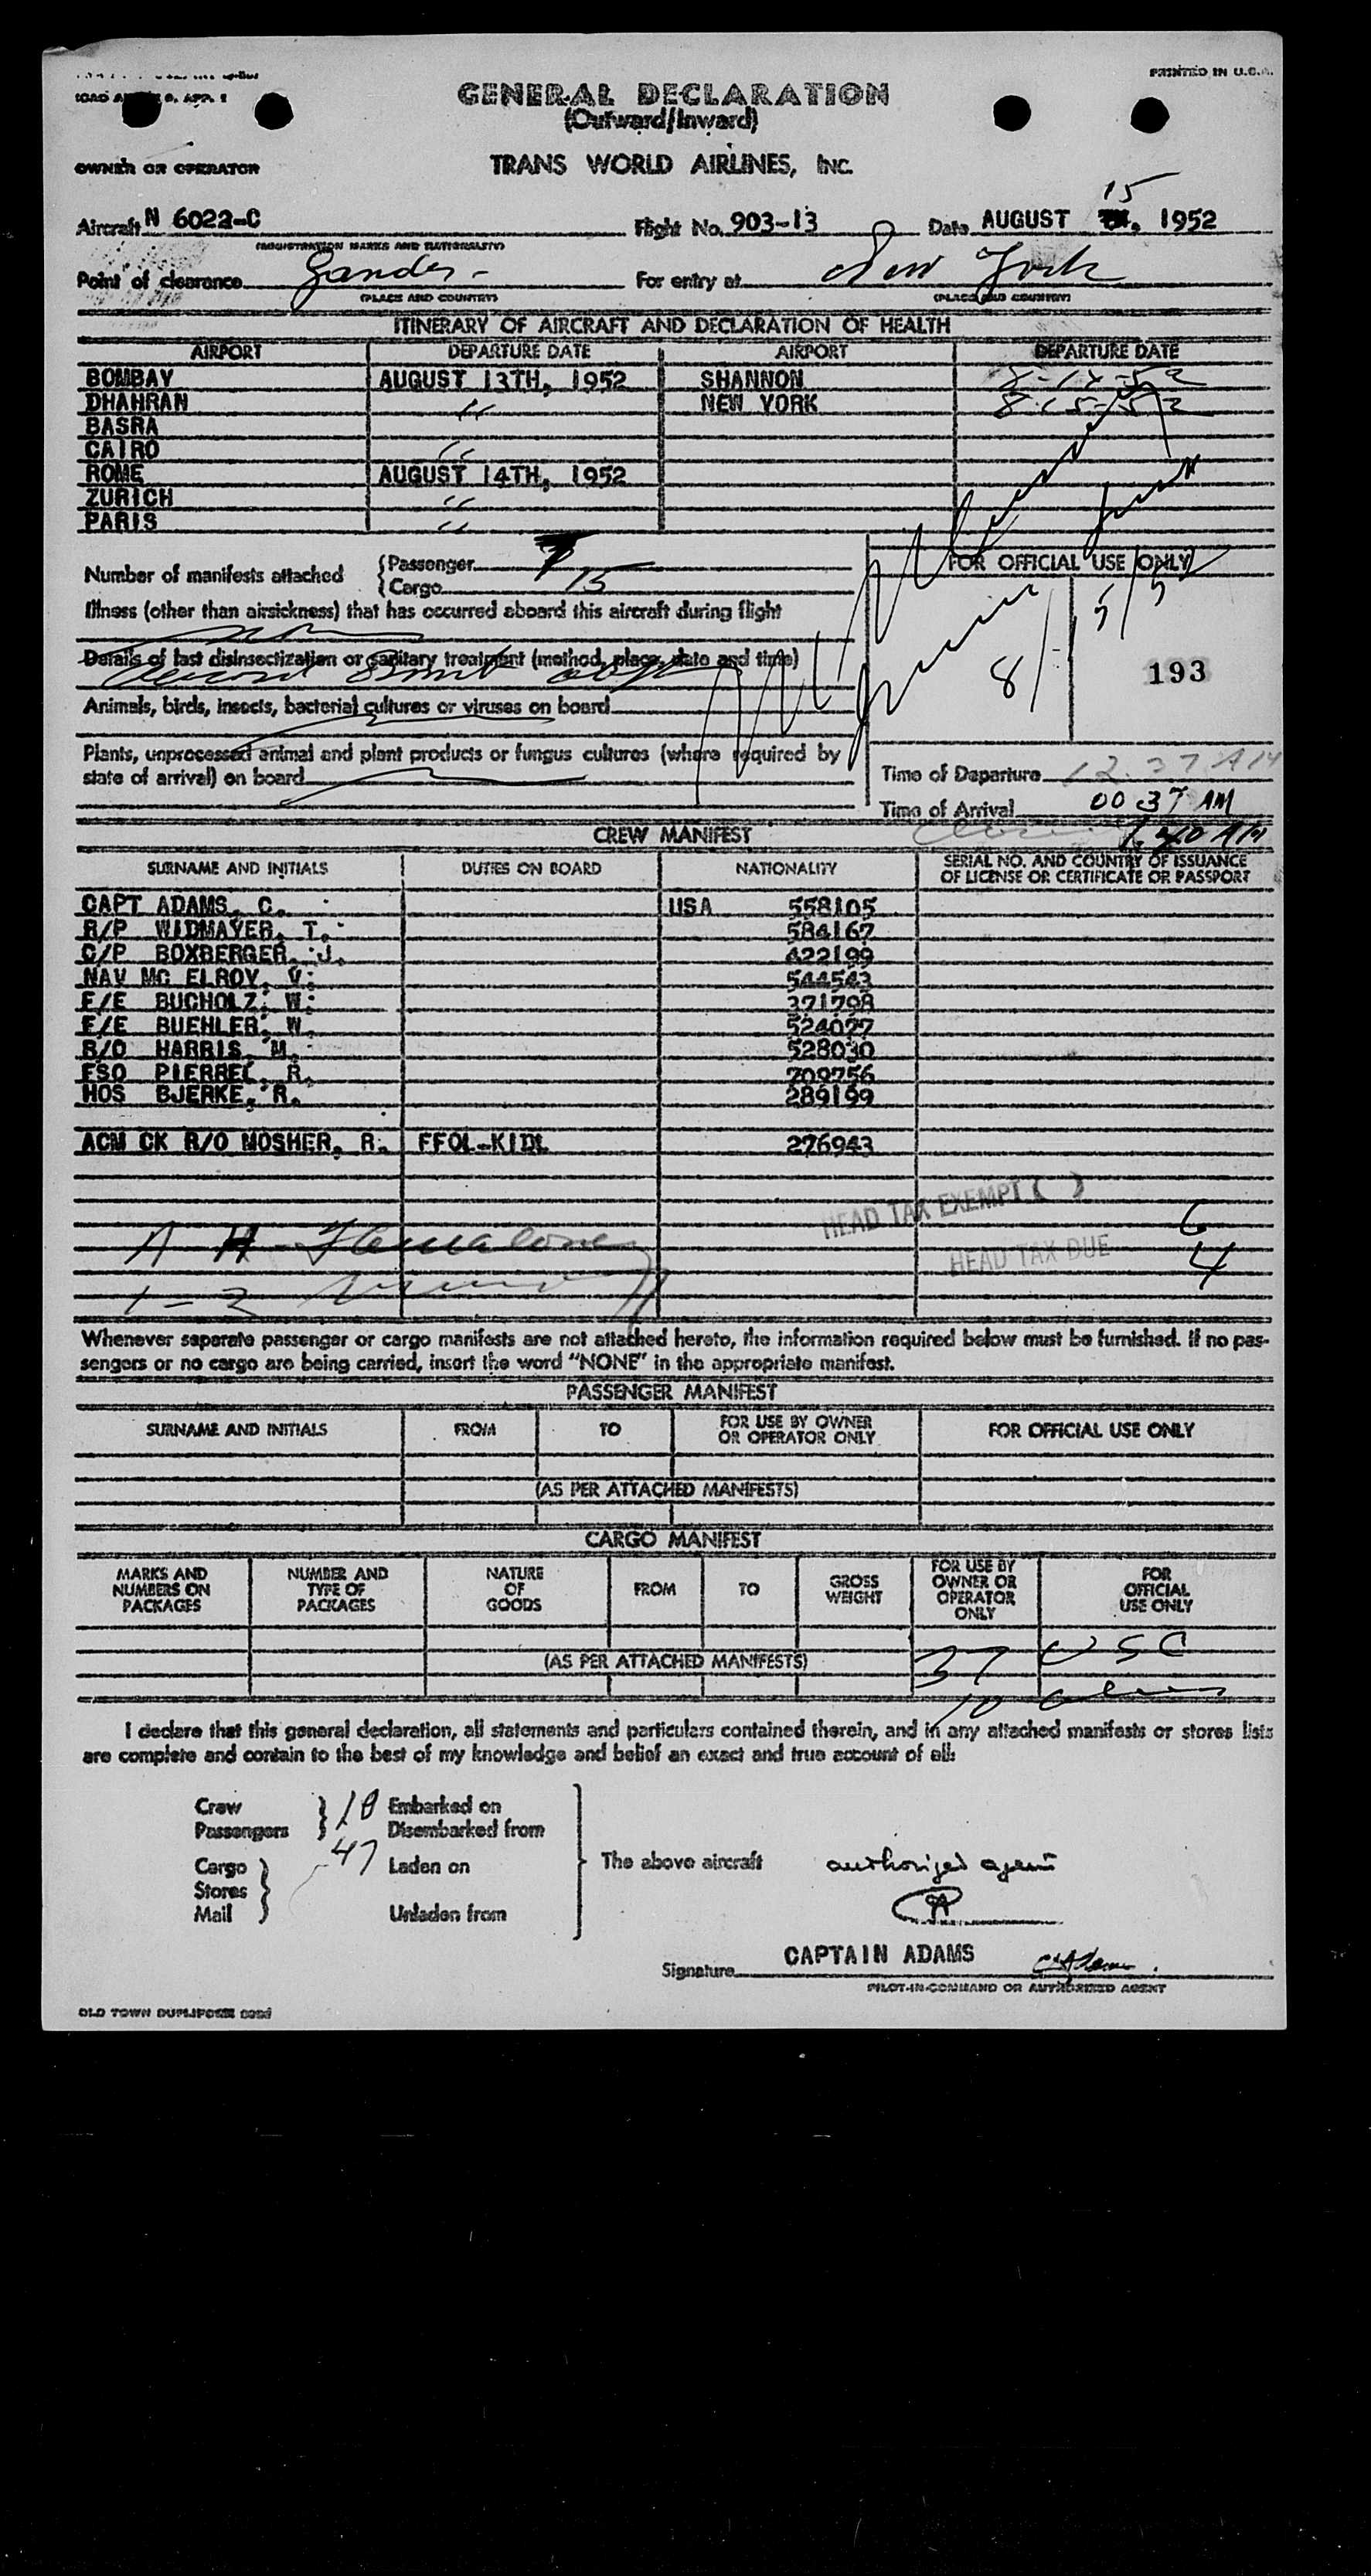 PRINTED IN U.S.A.
ICAO ANNEX 9, APP. 1
GENERAL DECLARATION
(Outward/Inward)
OWNER OR OPERATOR TRANS WORLD AIRLINES, INC.
15
Aircraft N 6022-C Flight No. 903-13 Date AUGUST , 1952
(REGISTRATION MARKS AND NATIONALITY)
Point of clearance Gander - For entry at New York
(PLACE AND COUNTRY) (PLACE AND COUNTRY)
ITINERARY OF AIRCRAFT AND DECLARATION OF HEALTH
AIRPORT DEPARTURE DATE AIRPORT DEPARTURE DATE
BOMBAY AUGUST 13TH, 1952 SHANNON 8-14-52
DHAHRAN " NEW YORK 8-15-52
BASRA
CAIRO "
ROME AUGUST 14TH, 1952
ZURICH "
PARIS "
Number of manifests attached {Passenger 7
{Cargo 15
FOR OFFICIAL USE ONLY
Illness (other than airsickness) that has occurred aboard this aircraft during flight
Details of last disinsectization or sanitary treatment (method, place, date and time)
193
Animals, birds, insects, bacterial cultures or viruses on board
Plants, unprocessed animal and plant products or fungus cultures (where required by
state of arrival) on board
Time of Departure 12.37 AM
Time of Arrival 00 37 AM
CREW MANIFEST
SURNAME AND INITIALS DUTIES ON BOARD NATIONALITY SERIAL NO. AND COUNTRY OF ISSUANCE
OF LICENSE OR CERTIFICATE OR PASSPORT
CAPT ADAMS, C. USA 558105
R/P WIDMAYER, T. 584167
C/P BOXBERGER, J. 422199
NAV MC ELROY, V. 544543
F/E BUCHOLZ, W. 371798
F/E BUEHLER, W. 524077
R/O HARRIS, M. 528030
FSO PIERREL, R. 709756
HOS BJERKE, R. 289199
ACM CK R/O MOSHER, R. FFOL-KIDL 276943
HEAD TAX EXEMPT ( ) 6
HEAD TAX DUE 4
Whenever separate passenger or cargo manifests are not attached hereto, the information required below must be furnished. If no pas-
sengers or no cargo are being carried, insert the word "NONE" in the appropriate manifest.
PASSENGER MANIFEST
SURNAME AND INITIALS FROM TO FOR USE BY OWNER
OR OPERATOR ONLY FOR OFFICIAL USE ONLY
(AS PER ATTACHED MANIFESTS)
CARGO MANIFEST
MARKS AND
NUMBERS ON
PACKAGES
NUMBER AND
TYPE OF
PACKAGES
NATURE
OF
GOODS
FROM
TO
GROSS
WEIGHT
FOR USE BY
OWNER OR
OPERATOR
ONLY
FOR
OFFICIAL
USE ONLY
37 USC
(AS PER ATTACHED MANIFESTS)
10 aliens
I declare that this general declaration, all statements and particulars contained therein, and in any attached manifests or stores lists
are complete and contain to the best of my knowledge and belief an exact and true account of all:
Crew } 10 Embarked on
Passengers } Disembarked from
47
Cargo } Laden on The above aircraft authorized agent
Stores
Mail } Unladen from
Signature CAPTAIN ADAMS C Adams
PILOT-IN-COMMAND OR AUTHORIZED AGENT
OLD TOWN